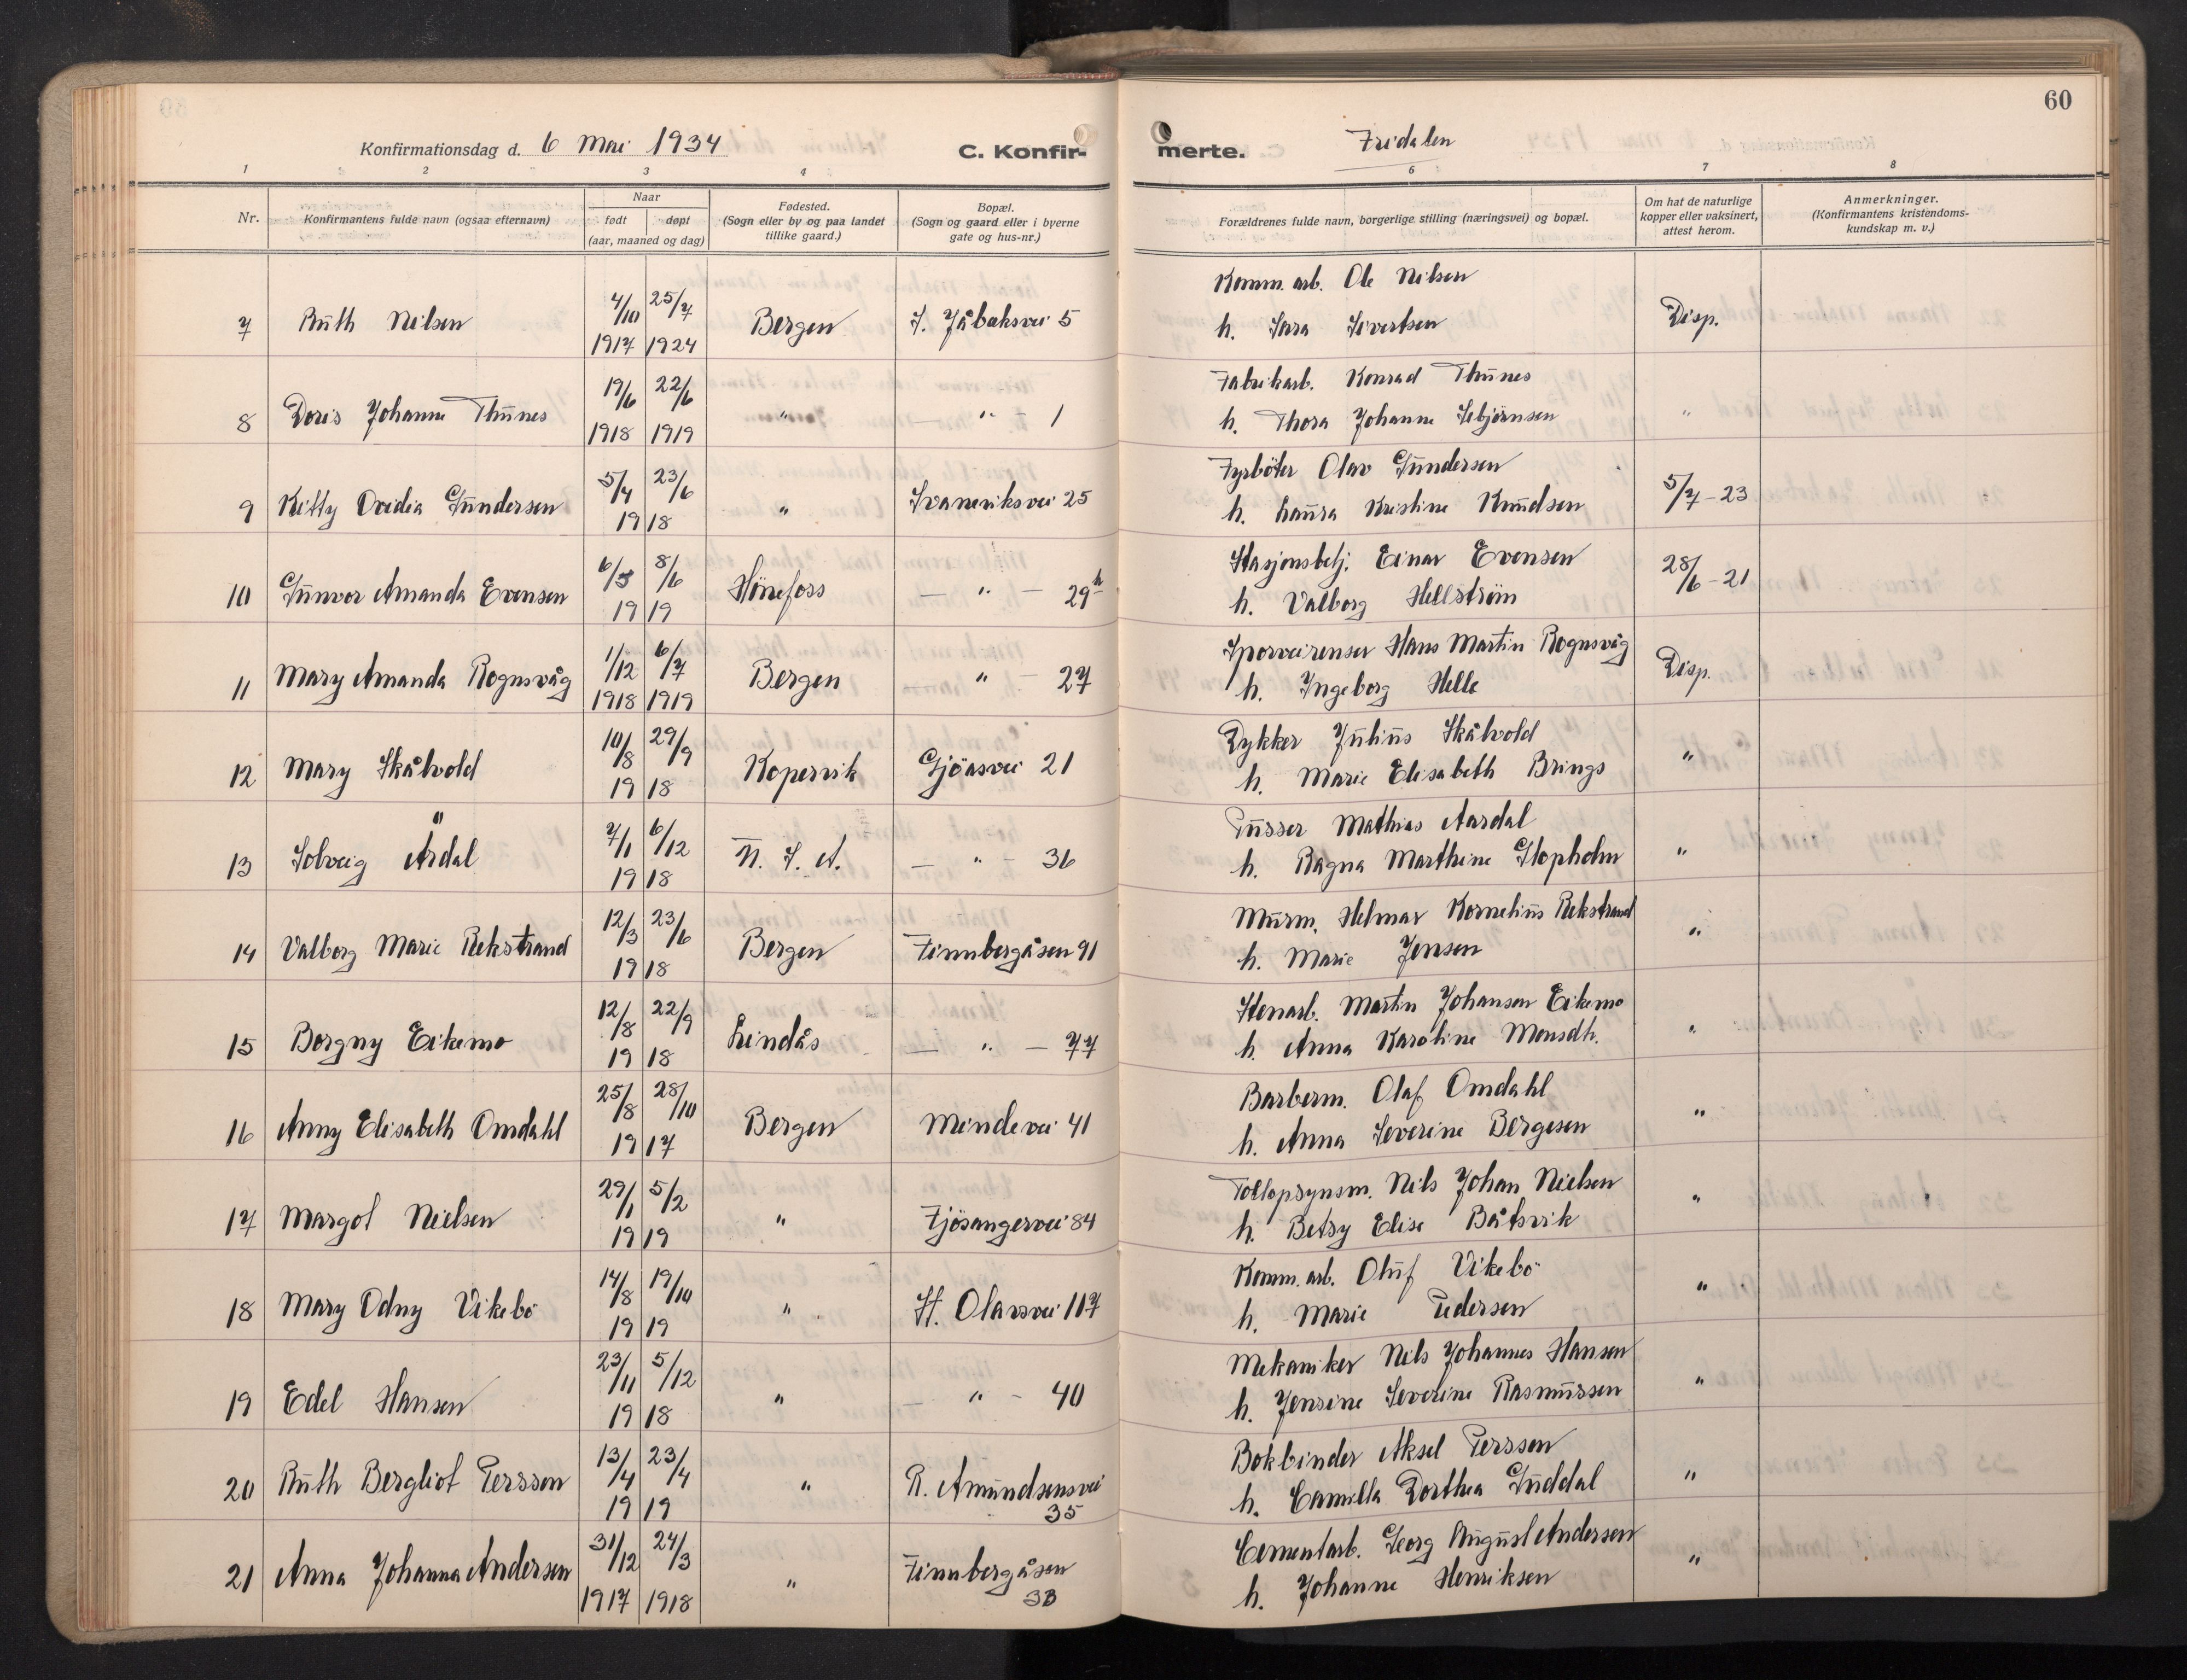 60
Konfirmationsdag d. 6 Mai 1934
C. Konfir-
merte.
Fridalen
1 2 3 4 6 7 8
Nr.
Konfirmantens fulde navn (ogsaa efternavn)
Naar
født døpt
(aar, maaned og dag)
Fødested.
(Sogn eller by og paa landet
tillike gaard.)
Bopæl.
(Sogn og gaard eller i byerne
gate og hus-nr.)
Forældrenes fulde navn, borgerlige stilling (næringsvei) og bopæl.
Om hat de naturlige
kopper eller vaksinert,
attest herom.
Anmerkninger.
(Konfirmantens kristendoms-
kundskap m. v.)
7 Ruth Nilsen 4/10 1917 25/7 1924 Bergen J. Jåbaksvei 5
Komm. arb. Ole Nilsen
h. Sara Sivertsen
Disp.
8 Doris Johanne Thunes 19/6 1918 22/6 1919 " " 1
Fabrikarb. Konrad Thunes
h. Thora Johanne Sebjörnsen
"
9 Kitty Ovidia Gundersen 5/4 23/6 1918 " Svaneviksvei 25
Fyrböter Olav Gundersen
h. Laura Kristine Knudsen
5/7-23
10 Gunvor Amanda Evensen 6/3 8/6 1919 Hönefoss — " — 29
Stasjonsbetj. Einar Evensen
h. Valborg Hellström
28/6-21
11 Mary Amanda Rognsvåg 1/12 1918 6/7 1919 Bergen " - 27
Sporveirenser Hans Martin Rognsvåg
h. Ingeborg Helle
Disp.
12 Mary Skålvold 10/8 29/9 1918 Kopervik Gjöasvei 21
Dykker Julius Skålvold
h. Marie Elisabeth Brings
"
13 Solveig Årdal 7/1 6/12 1918 N. S. A. — " — 36
Pusser Mathias Aardal
h. Ragna Marthine Glopholm
"
14 Valborg Marie Rekstrand 12/3 23/6 1918 Bergen Finnbergåsen 91
Murm. Helmar Kornelius Rekstrand
h. Marie Jensen
"
15 Borgny Eikemo 12/8 22/9 1918 Lindås — " — 77
Stenarb. Martin Johansen Eikemo
h. Anna Karoline Monsdh.
"
16 Anny Elisabeth Omdahl 25/8 28/10 1917 Bergen Mindevei 41
Barberm. Olaf Omdahl
h. Anna Severine Bergesen
"
17 Margot Nielsen 29/1 5/2 1919 " Fjösangervei 84
Tollopsynsm. Nils Johan Nielsen
h. Betsy Elise Båtsvik
"
18 Mary Odny Vikebö 14/8 19/10 1919 " St. Olavsvei 117
Komm. arb. Oluf Vikebö
h. Marie Pedersen
"
19 Edel Hansen 23/11 5/12 1918 " — " — 40
Mekaniker Nils Johannes Hansen
h. Jensine Severine Rasmussen
"
20 Ruth Bergliot Persson 13/4 23/4 1919 " R. Amundsensvei
35
Bokbinder Aksel Persson
h. Camilla Dorthea Guddal
"
21 Anna Johanna Andersen 31/12 1917 24/3 1918 " Finnbergåsen
33
Cementarb. Georg August Andersen
h. Johanne Henriksen
"